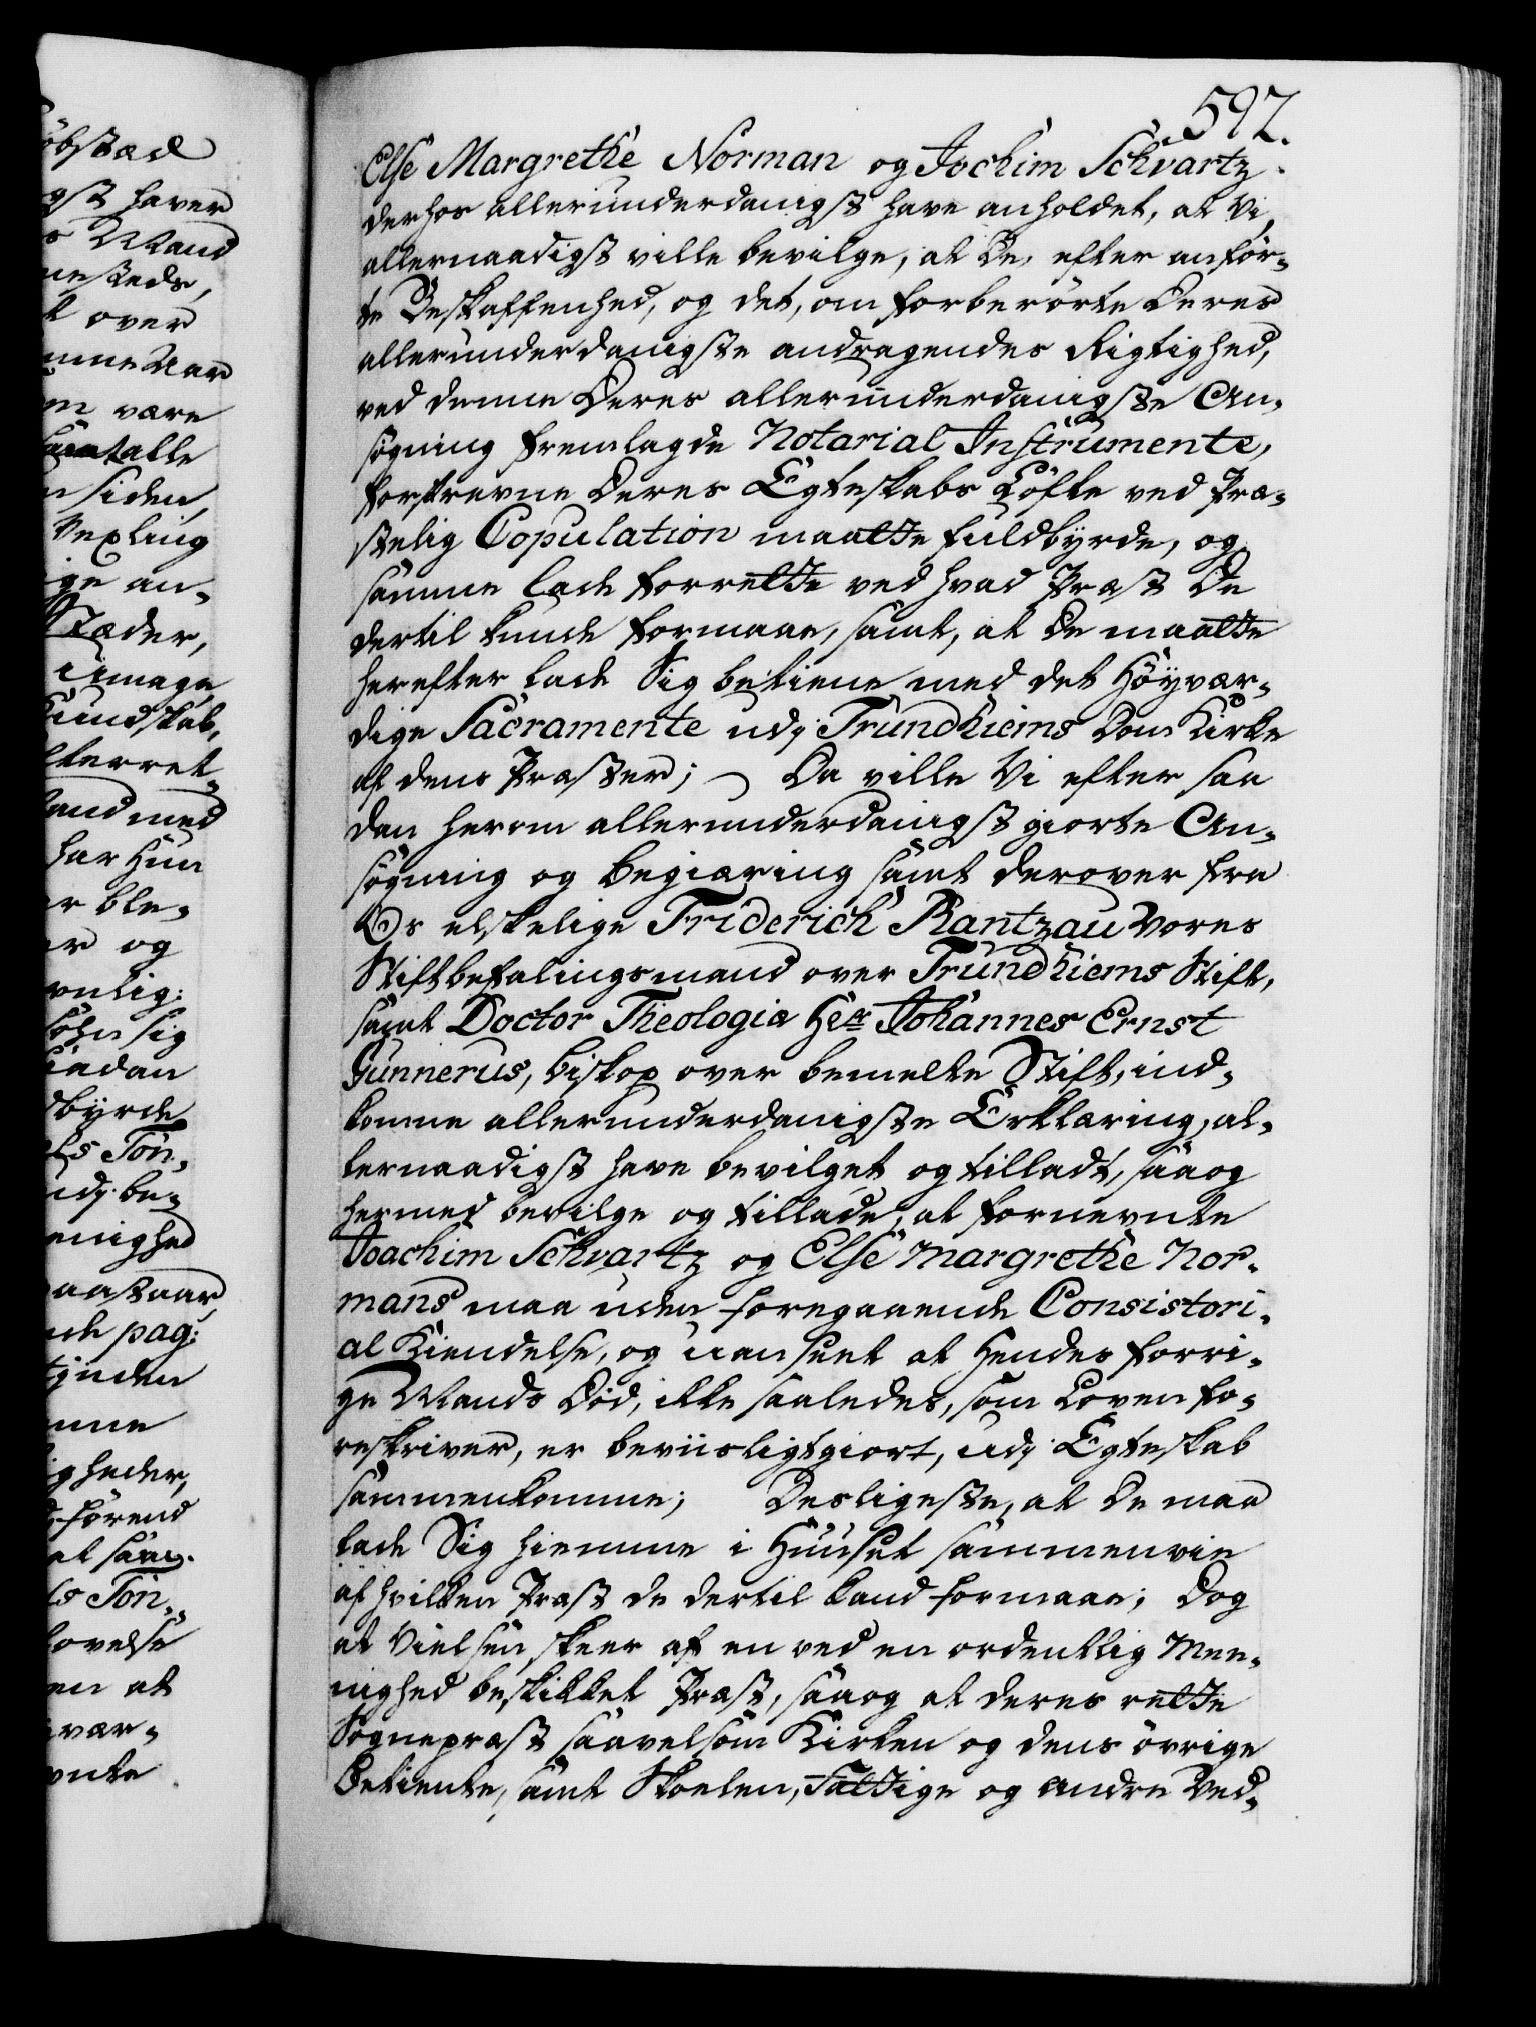 592.
Else Margrethe Norman og Jochim Schvartz
derhos allerunderdanigst have anholdet, at Vi
allernaadigst ville bevilge, at De, efter anför-
te Beskaffenhed, og det, om forberörte Deres
allerunderdanigste andragendes Rigtighed,
ved denne Deres allerunderdanigste An-
søgning fremlagde Notarial Instrumente,
forskrevne Deres Egteskabs Löfte ved Præ-
stelig Copulation maatte fuldbyrde, og
samme lade forrette ved hvad Præst De
dertil kunde formaae, samt, at De maatte
herefter lade Sig betiene med det Höyvær-
dige Sacramente udj Trundhiems Dom Kirke
af dens Præster; Da ville Vi efter saa
dan herom allerunderdanigst giorte An-
søgning og begiæring samt derover fra
Os elskelige Friderich Rantzau Vores
Stiftbefalingsmand over Trundhiems Stift,
samt Doctor Theologiæ Her Johannes Ernst
Gunnerus, Biskop over bemelte Stift, ind-
komne allerunderdanigste Erklæring, al-
lernaadigst have bevilget og tilladt, saa og
hermed bevilge og tillade, at fornevnte
Joachim Schvartz og Else Margrethe Nor-
mans maa uden foregaaende Consistori-
al Kiendelse, og uanseet at Hendes forri-
ge Mands Död, ikke saaledes, som Loven fo-
reskriver, er beviisligtgiort, udj Egteskab
sammenkomme; Desligeste, at De maa
lade Sig hiemme i Huuset sammenvie
af hvilken Præst de dertil kand formaae; Dog
at Vielsen skeer af en ved en ordentlig Mee-
nighed beskikket Præst, saa og at deres rette
Sognepræst saavelsom Kirken og dens övrige
Betiente, samt Skolen, Fattige og andre Ved-